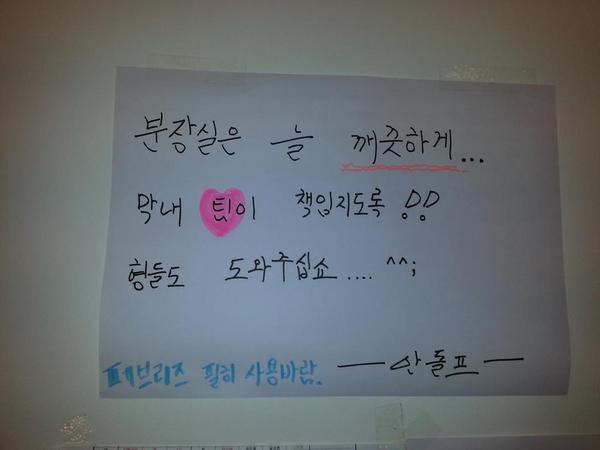 분장실은 늘 깨끗하게...
막내 팀이 책임지도록 !!
형들도 도와주십쇼.... ^^;
페브리즈 필히 사용바람.
— 산돌프 —